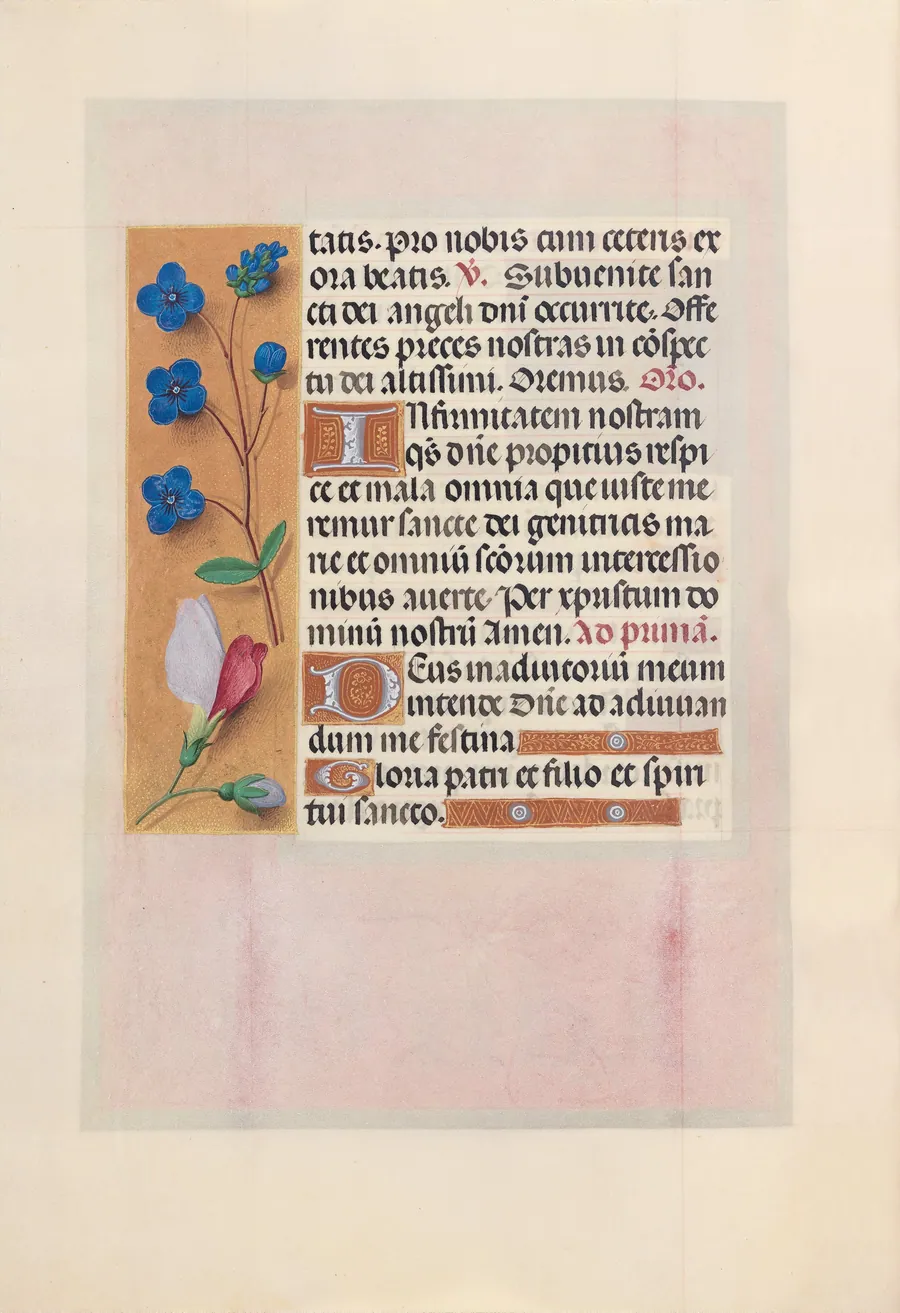 tatis. Pro nobis cum ceteris ex
ora beatis. V̇. Subuenite san
cti dei angeli dn̄i occurrite. Offe
rentes preces nostras in cōspec
tu dei altissimi. Oremus. Oro.
INfirmitatem nostram
qs̄ dn̄e propitius respi
ce et mala omnia que iuste me
remur sancte dei genitricis ma
rie et omniū scōrum intercessio
nibus auerte. Per xpristum do
minū nostrū Amen. Ad primā.
DEus in adiutoriū meum
intende Dn̄e ad adiuuan
dum me festina
Gloria patri et filio et spiri
tui sancto.